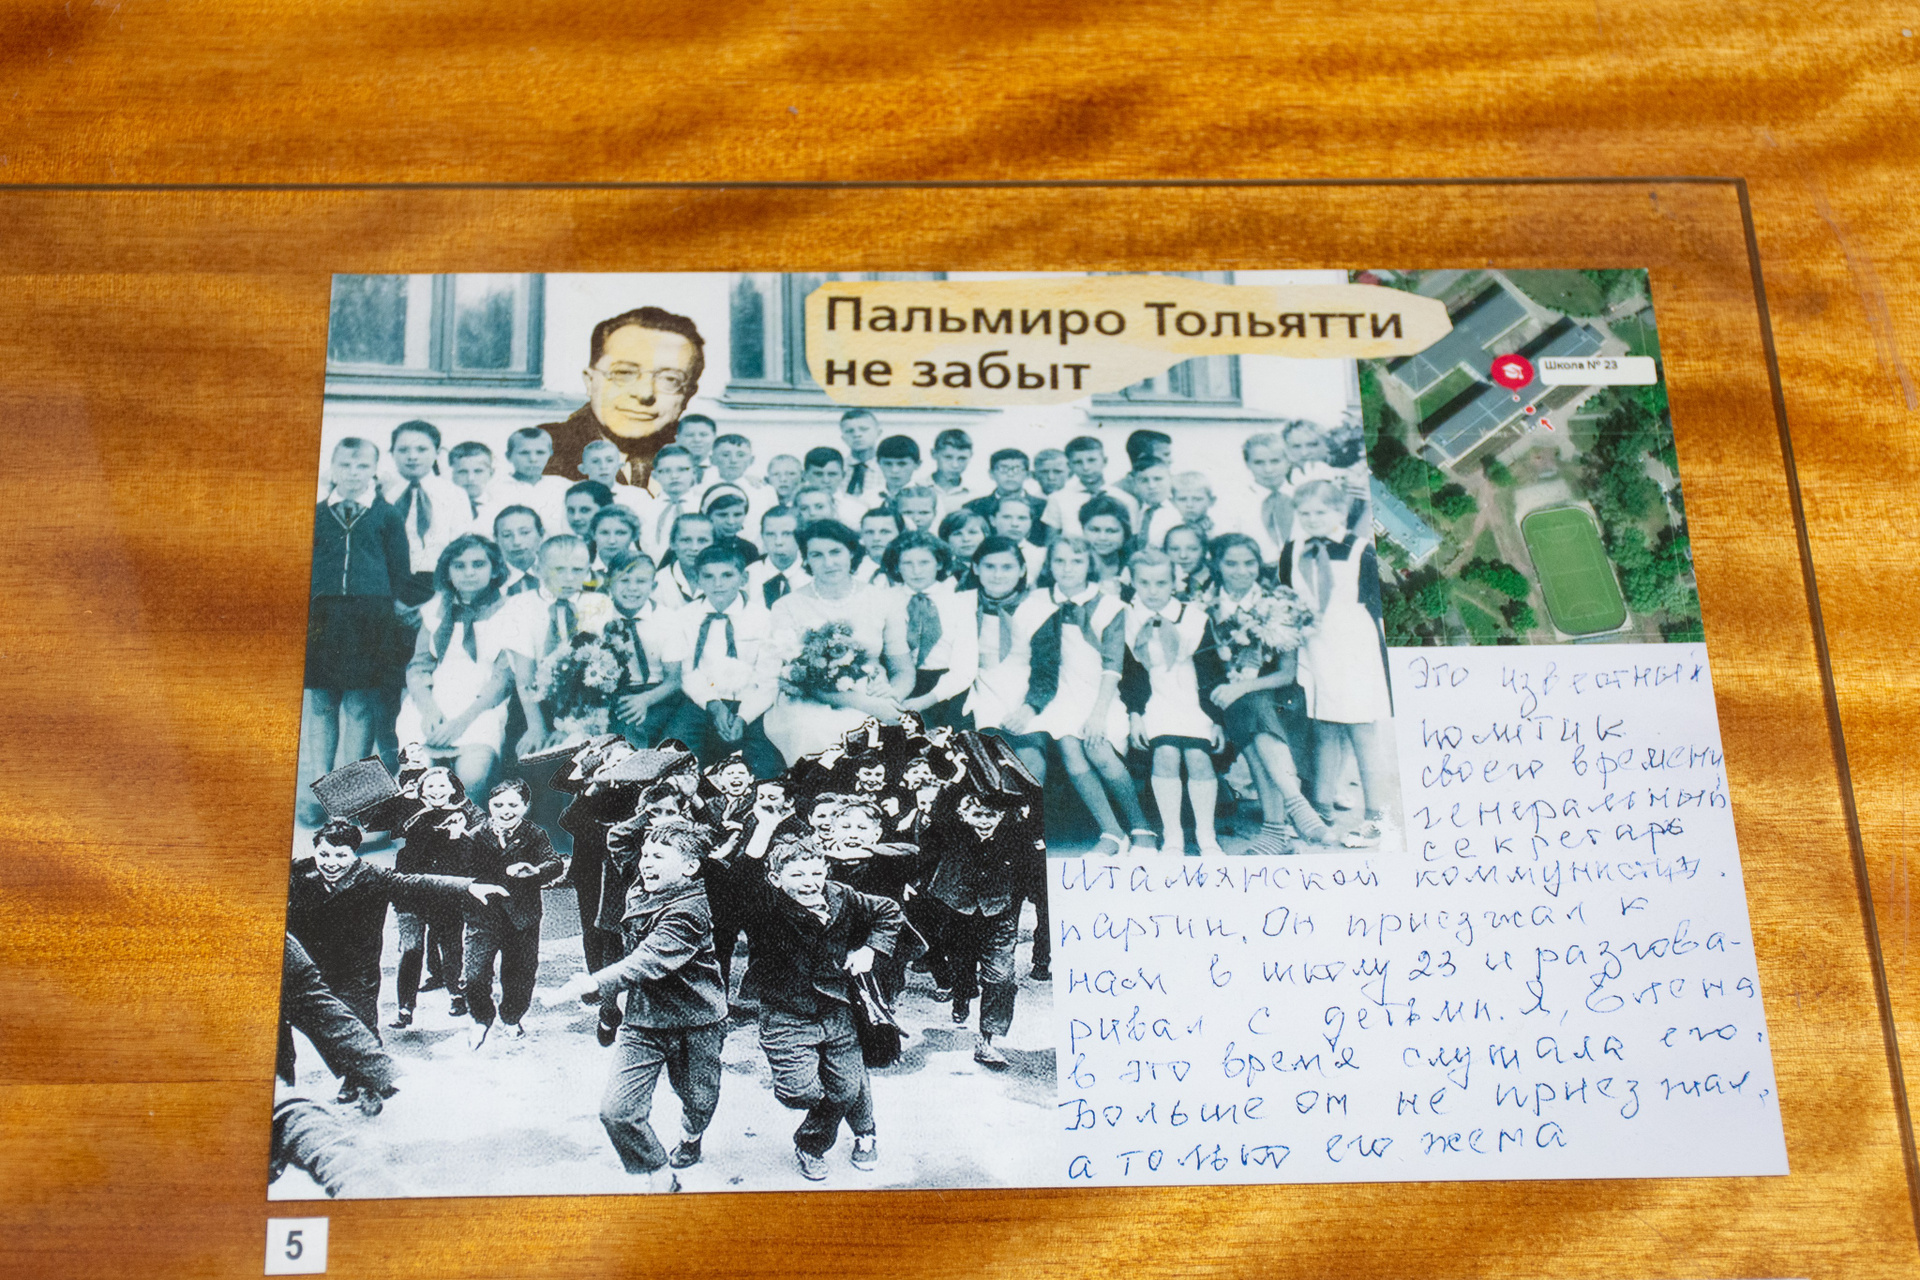 Пальмиро Тольятти
не забыт
Школа № 23
Это известный
политик
своего времени,
генеральный
секретарь
Итальянской коммунистич.
партии. Он приезжал к
нам в школу 23 и разгова-
ривал с детьми. Я, Елена
в это время слушала его.
Больше он не приезжал,
а только его жена
5